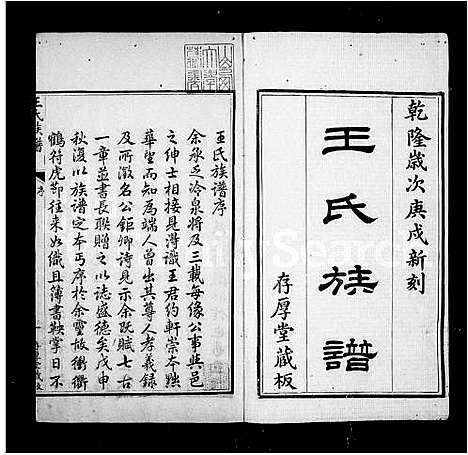 乾隆歲次庚戌新刻
王氏族譜
存厚堂藏板
王氏族譜序
余承乏冷泉將及三載每緣公事與邑
之紳士相接見得識王君約軒崇本黜
華望而知為端人曾出其尊人孝義錄
及所徵名公鉅卿詩見示余既賦七古
一章並書長聯贈之以誌盛德矣戊申
秋復以族譜定本丐序於余靈故衝衢
鶴符虎節往來如織且簿書鞅掌日不
王氏族譜
序